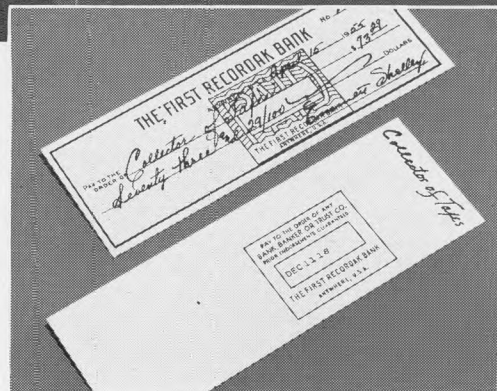 No.
THE FIRST RECORDAK BANK
April 15 1955
PAY TO THE ORDER OF Collector of Taxes $73.29
Seventy three and 29/100 DOLLARS
THE FIRST RECORDAK BANK
ANYWHERE, U.S.A.
Shelley
Collector of Taxes
PAY TO THE ORDER OF ANY
BANK, BANKER OR TRUST CO.
PRIOR INDORSEMENTS GUARANTEED
DEC 11 18
THE FIRST RECORDAK BANK
ANYWHERE, U.S.A.